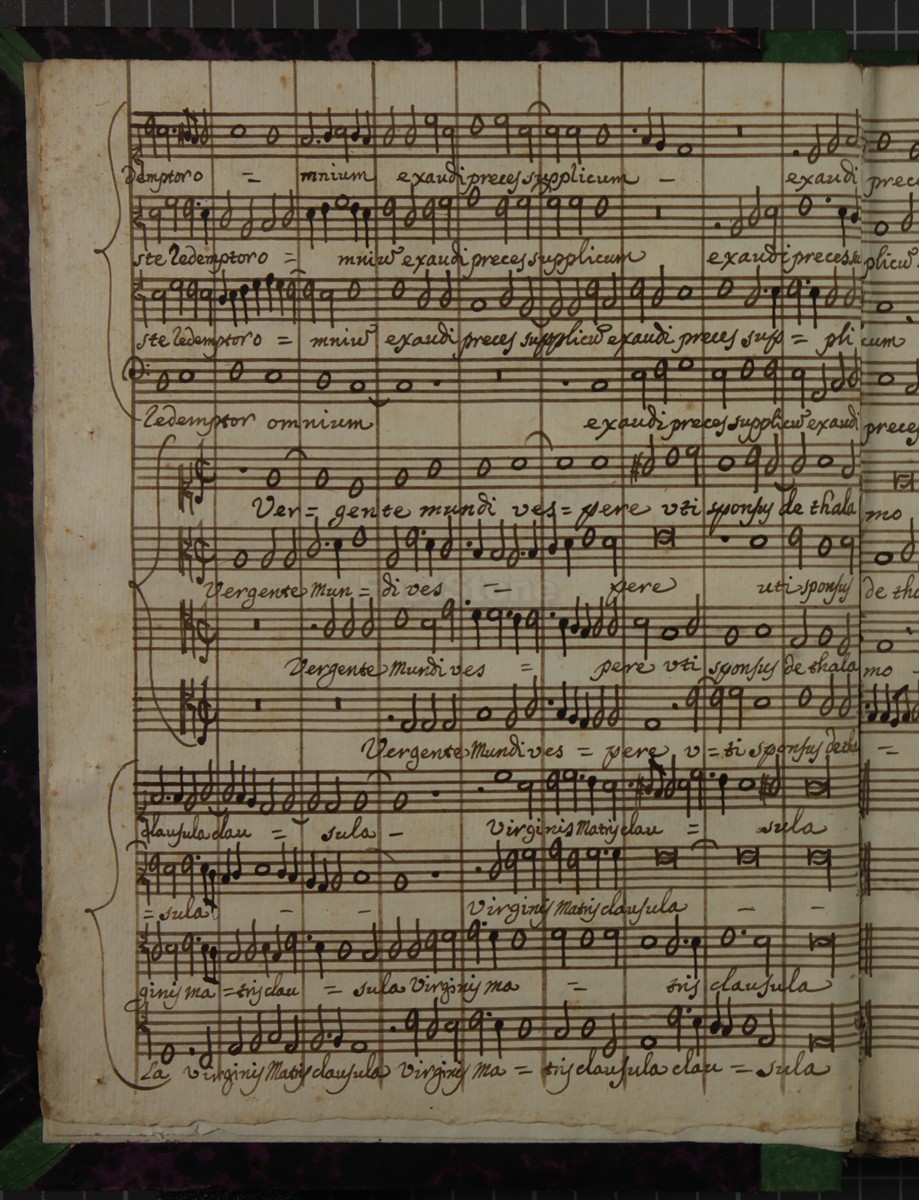 demptor o = mnium exaudi preces supplicum - exaudi prece
ste redemptor o = mniũ exaudi preces supplicum exaudi preces su plicũ
ste redemptor o = mniũ exaudi preces supplicũ exaudi preces sup = pli cum
redemptor omnium exaudi preces supplicũ exaudi preces
Ver = gente mundi ves = pere vti sponsus de thala mo
Vergente Mun = di ves - pere uti sponsus de tha
Vergente Mundi ves = pere vti sponsus de thala mo -
Vergente Mundi ves = pere v = ti sponsus de tha -
clausula clau = sula - virginis Matris clau = sula
= sula - - virginis Matris clausula - -
ginis ma = tris clau = sula virginis ma - tris clausula
la virginis Matris clausula virginis ma = tris clausula clau = sula